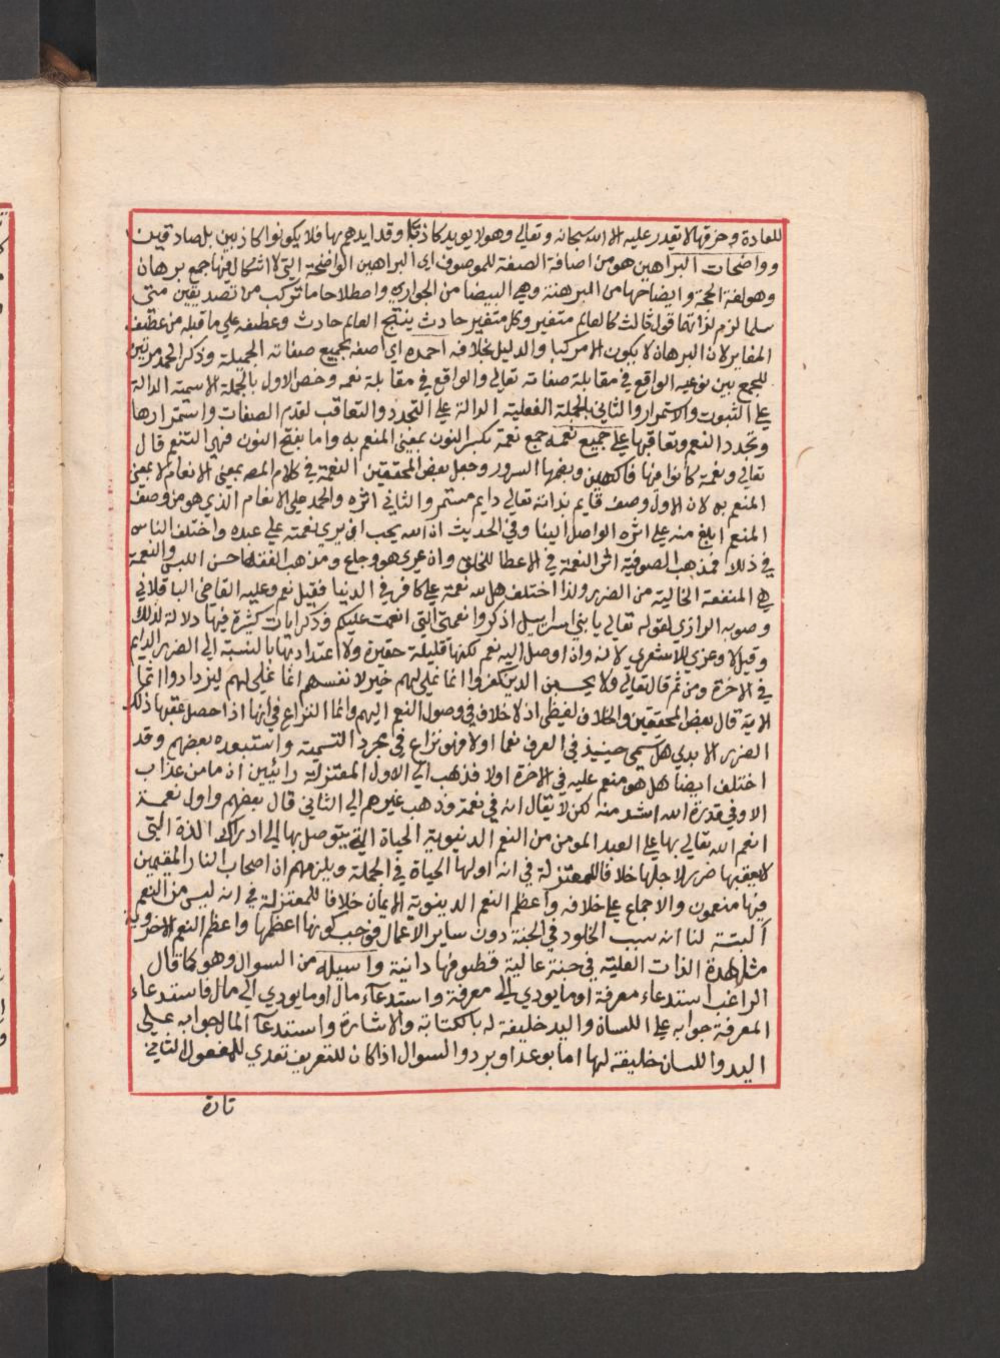 للعادة وخرقها لا يقدر عليه الا الله سبحانه وتعالي وهو لا يويد كاذبا وقد ايدهم بها فلا يكونوا كاذبين بل صادقين
وواضحات البراهين هو من اضافة الصفة للموصوف اي البراهين الواضحة التي لا اشكال فيها جمع برهان
وهو لغة الحجة وايضاحها من البرهنة وهي البيضا من الجواري واصطلاحا ما تركب من تصديقين متي
سلما لزم لذاتهما قول ثالث كالعالم متغير وكل متغير حادث ينتج العالم حادث وعطفه علي ما قبله من عطف
المغاير لان البرهان لا يكون الا مركبا والدليل بخلافه احمده اي اصفه بجميع صفاته الجميلة وذكر الحمد مرتين
للجمع بين نوعيه الواقع في مقابلة صفاته تعالي والواقع في مقابلة نعمه وخص الاول بالجملة الاسمية الدالة
علي الثبوت والاستمرار والثاني بالجملة الفعلية الدالة علي التجدد والتعاقب لقدم الصفات واستمرارها
وتجدد النعم وتعاقبها علي جميع نعمه جمع نعمة بكسر النون بمعني المنعم به واما بفتح النون فهي التنعم قال
تعالي ونعمة كانوا فيها فاكهين وبضمها السرور وجعل بعض المحققين النعمة في كلام المص بمعني الانعام لا بمعني
المنعم به لان الاول وصف قايم بذاته تعالي دايم مستمر والثاني اثره والحمد علي الانعام الذي هو من وصف
المنعم ابلغ منه علي اثره الواصل الينا وفي الحديث ان الله يحب ان يري نعمته علي عبده واختلف الناس
في ذلك فمذهب الصوفية اثر النعمة في الاعطا للخلق وان عري هو وجاع ومذهب الفقها حسن اللبس والنعمة
هي المنفعة الخالية من الضرر ولذا اختلف هل لله نعمة علي كافر في الدنيا فقيل نعم وعليه القاضي الباقلاني
وصوبه الرازي لقوله تعالي يا بني اسراييل اذكروا نعمتي التي انعمت عليكم وذكر ايات كثيرة فيها دلالة لذلك
وقيل لا وعزي للاشعري لانه وان اوصل اليه نعم لكنها قليلة حقيرة ولا اعتداد بها بالنسبة الي الضرر الدايم
في الاخرة ومن ثم قال تعالي ولا يحسبن الذين كفروا انما نملي لهم خير لانفسهم انما نملي لهم ليزدادوا اثما
الاية قال بعض المحققين والخلاف لفظي اذ لا خلاف في وصول النعم اليهم وانما النزاع في انها اذا حصل عقبها ذلك
الضرر الابدي هل تسمي حينيذ في العرف نعما اولا فهو نزاع في مجرد التسمية واستبعده بعضهم وقد
اختلف ايضا هل هو منعم عليه في الاخرة اولا فذهب الي الاول المعتزلة رائيين انه ما من عذاب
الا وفي قدرة الله اشد منه لكن لا يقال انه في نعمة وذهب غيرهم الي الثاني قال بعضهم واول نعمة
انعم الله تعالي بها علي العبد المومن من النعم الدنيوية الحياة التي يتوصل بها الي ادراك اللذة التي
لا يعقبها ضرر لاجلها خلافا للمعتزلة في انه اولها الحياة في الجملة ويلزمهم ان اصحاب النار المقيمين
فيها منعمون والاجماع علي خلافه واعظم النعم الدنيوية الايمان خلافا للمعتزلة في انه ليس من النعم
البتة لنا انه سبب الخلود في الجنة دون ساير الاعمال فوجب كونها اعظمها واعظم النعم الاخروية
مشاهدة الذات العلية في جنة عالية قطوفها دانية واسيله من السوال وهو كما قال
الراغب استدعاء معرفة او ما يودي الي معرفة واستدعاء مال او ما يودي الي مال فاستدعاء
المعرفة جوابه علي اللسان واليد خليفة له بالكتابة والاشارة واستدعاء المال جوابه علي
اليد واللسان خليفة لها اما بوعد او برد والسوال اذا كان للتعريف تعدي للمفعول الثاني
تارة